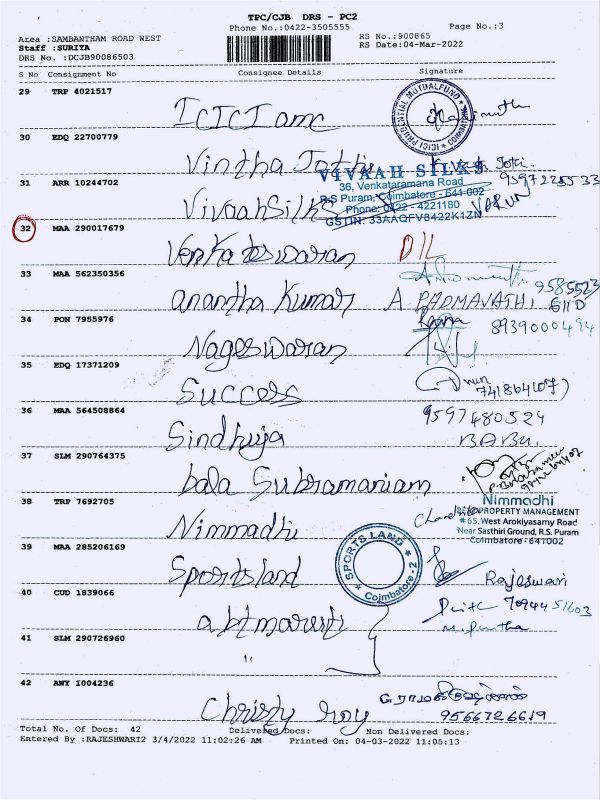 TPC/CJB DRS - PC2
Phone No.:0422-3505555
Page No.:3
Area :SAMBANTHAM ROAD WEST
RS No.:900865
Staff :SURIYA
RS Date:04-Mar-2022
DRS No. :DCJB90086503
S No Consignment No Consignee Details Signature
29 TRP 4021517
ICICI amc
ICICI PRUDENTIAL MUTUAL FUND COIMBATORE
30 EDQ 22700779
Vintha Jothi
31 ARR 10244702
VIVAAH SILKS
36, Venkataramana Road
R.S Puram, Coimbatore - 641 002
Phone: 0422 - 4221180
GSTIN: 33AAQFV8422K1ZN
9597225533
VARUN
VivaahSilks
32 MAA 290017679
Venkateswaran
DIL
33 MAA 562350356
anantha Kumar
A PADMAVATHI
34 PON 7955976
8939000494
Nageswaran
35 EDQ 17371209
Success
36 MAA 564508864
9597480524
BABU.
Sindhuja
37 SLM 290764375
bala Subramaniam
38 TRP 7692705
Nimmadhi
PROPERTY MANAGEMENT
# 65, West Arokiyasamy Road
Near Sasthiri Ground, R.S. Puram
Coimbatore - 641002
Nimmadhi
39 MAA 285206169
SPORTS LAND Coimbatore - 2
Sportsland
Rajeswari
40 CUD 1839066
abtmaruti
41 SLM 290726960
"
42 AWY 1004236
Christy roy
9566726619
Total No. Of Docs: 42 Delivered Docs: Non Delivered Docs:
Entered By :RAJESHWARI2 3/4/2022 11:02:26 AM Printed On: 04-03-2022 11:05:13